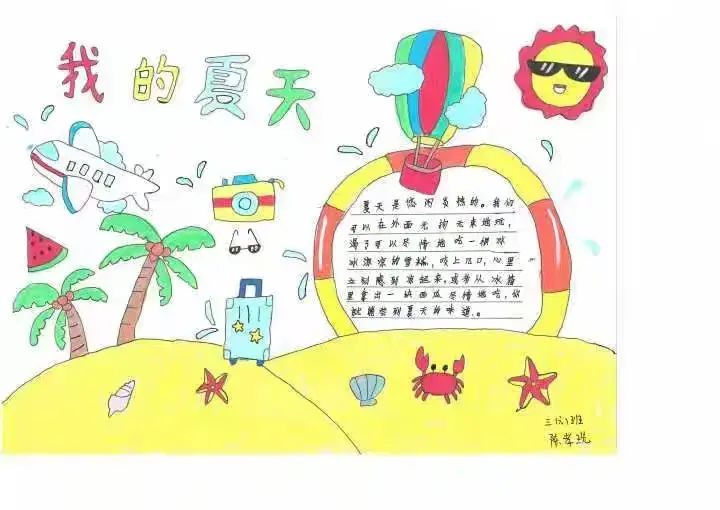 我的夏天
夏天是悠闲自情的。我们
可以在外面无拘无束地玩,
渴了可以尽情地吃一根冰
冰凉凉的雪糕,咬上几口,心里
立刻感到凉起来,或者从冰箱
里拿出一块西瓜尽情地吃,你
就能尝到夏天的味道。
三(6)班
陈孝